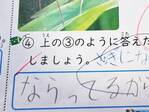 ④ 上の③のように答えた
しましょう。
きになっ
ならってるから